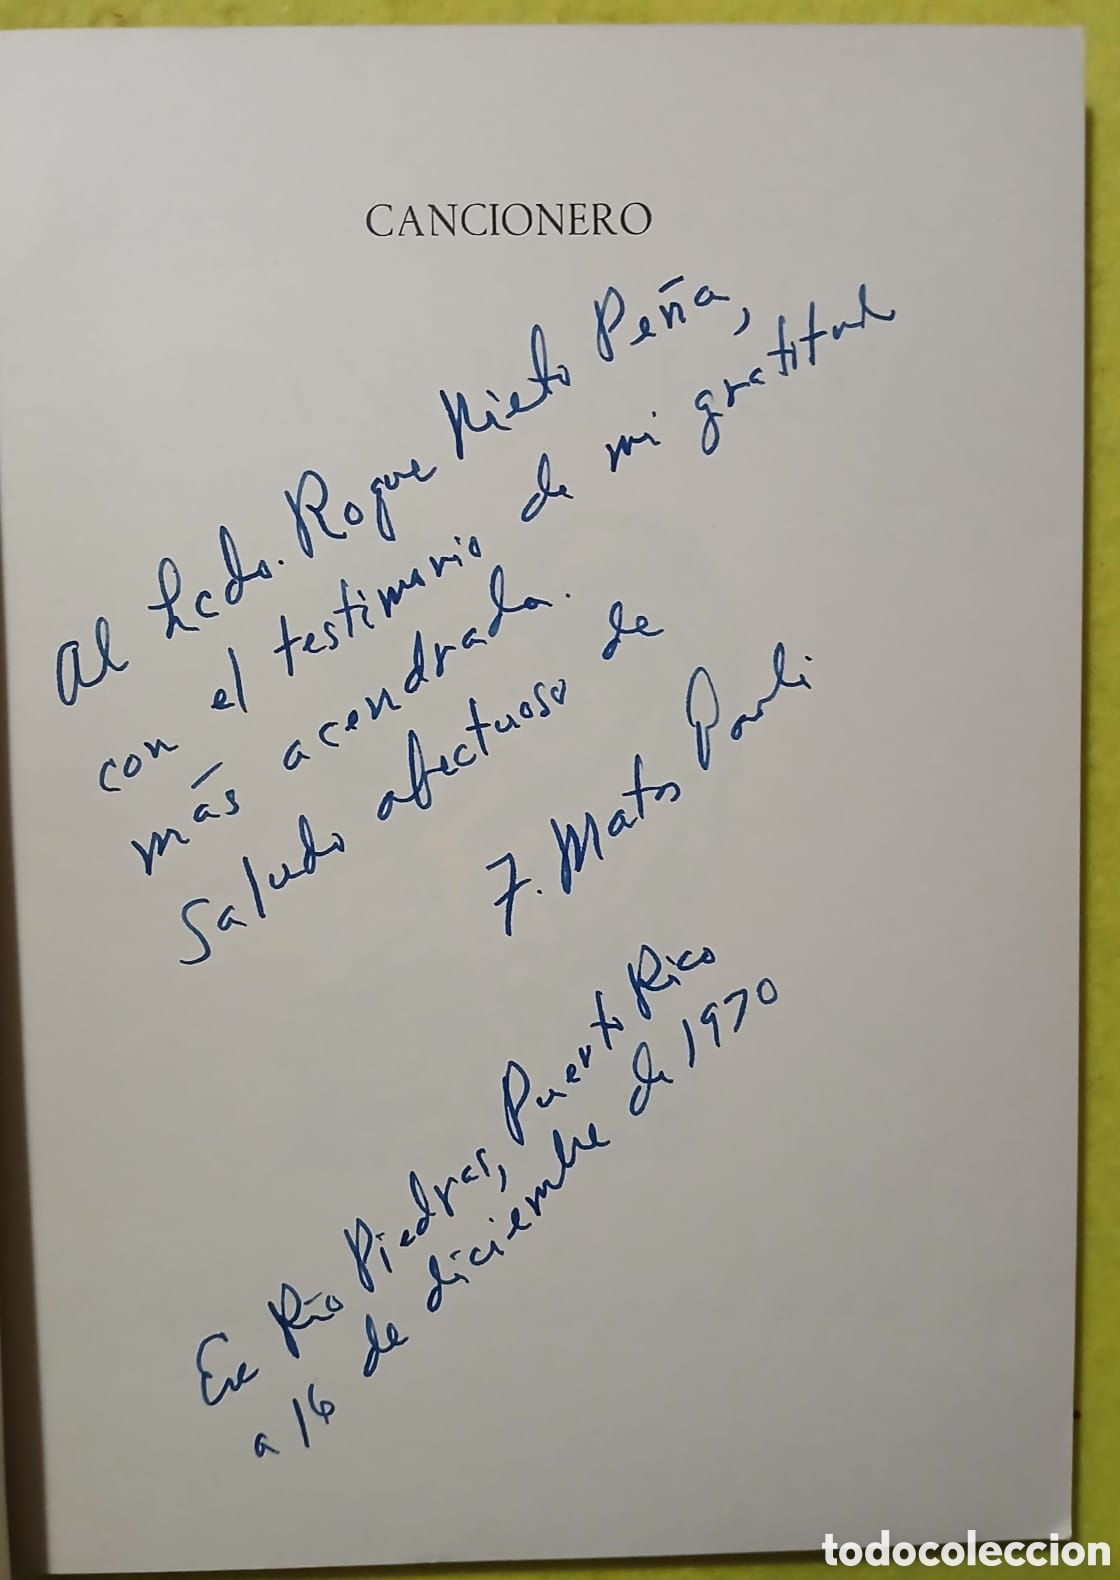 CANCIONERO
Al Lcdo. Roque Nieto Peña,
con el testimonio de mi gratitud
más acendrada.
Saludo afectuoso de
F. Matos Paoli
En Río Piedras, Puerto Rico
a 16 de diciembre de 1970
todocoleccion